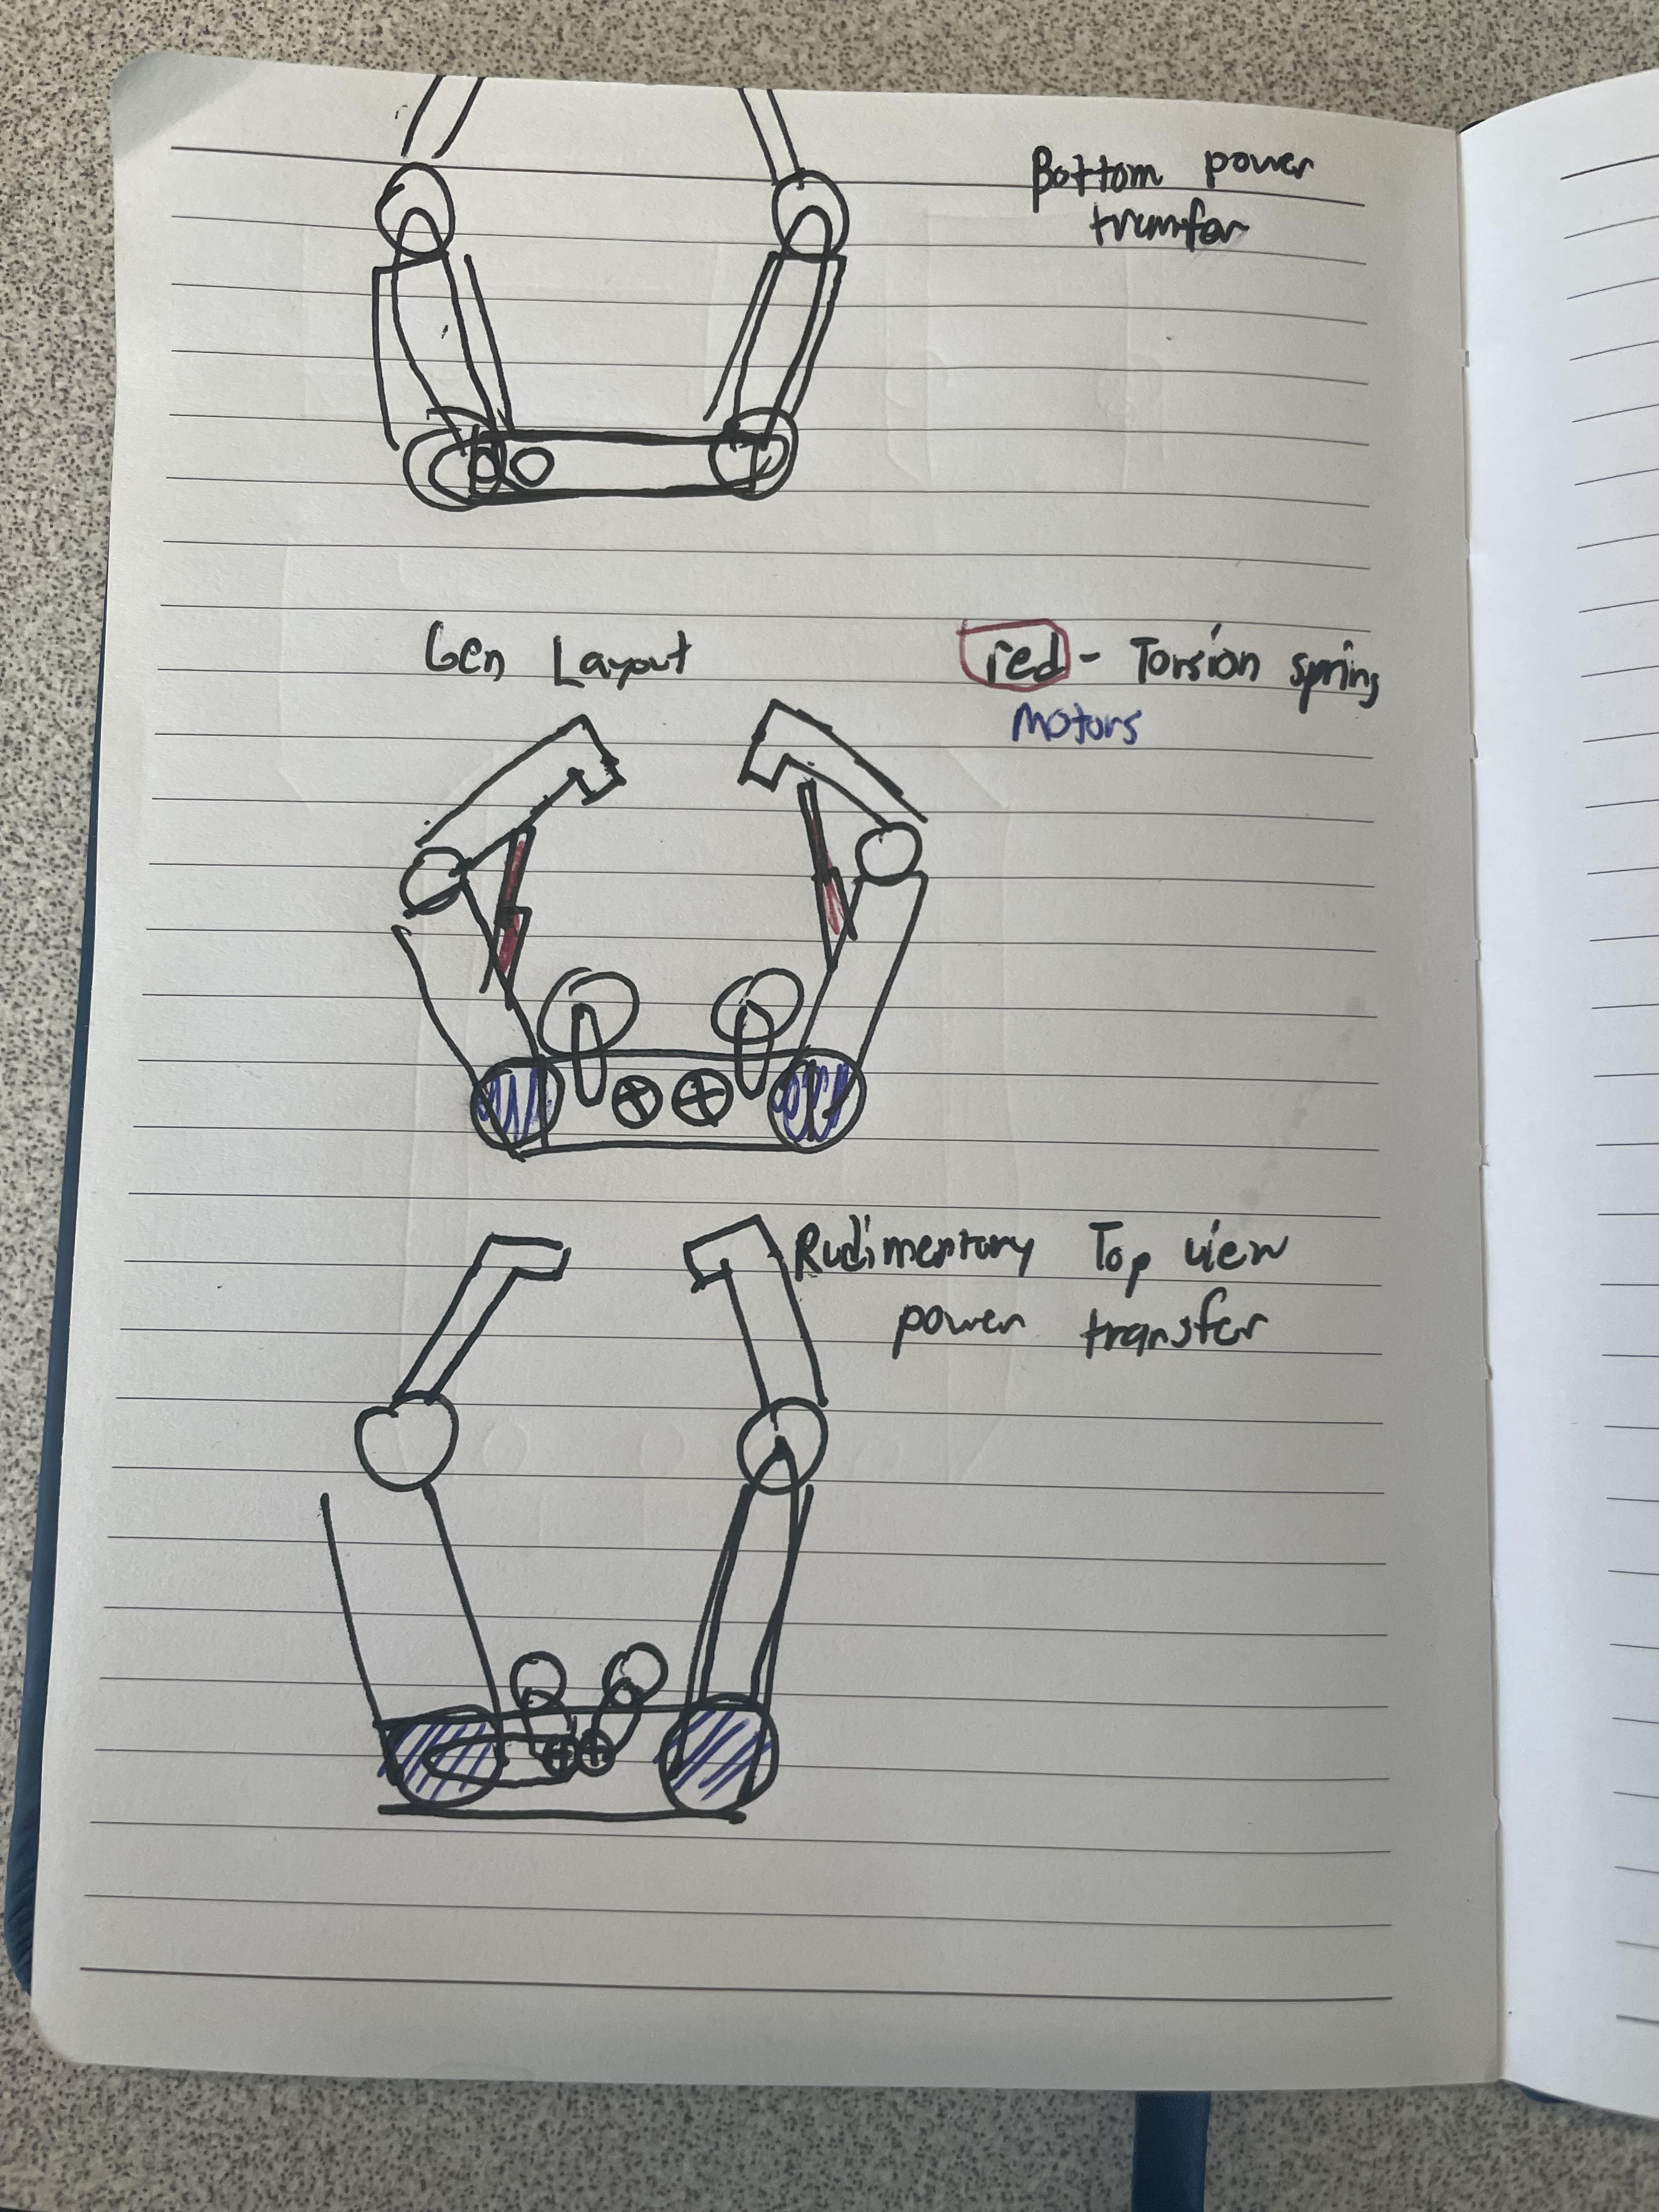 Bottom power
trumfer
Gen Layout
red - Torsion spring
Motors
Rudimentary Top view
power transfer